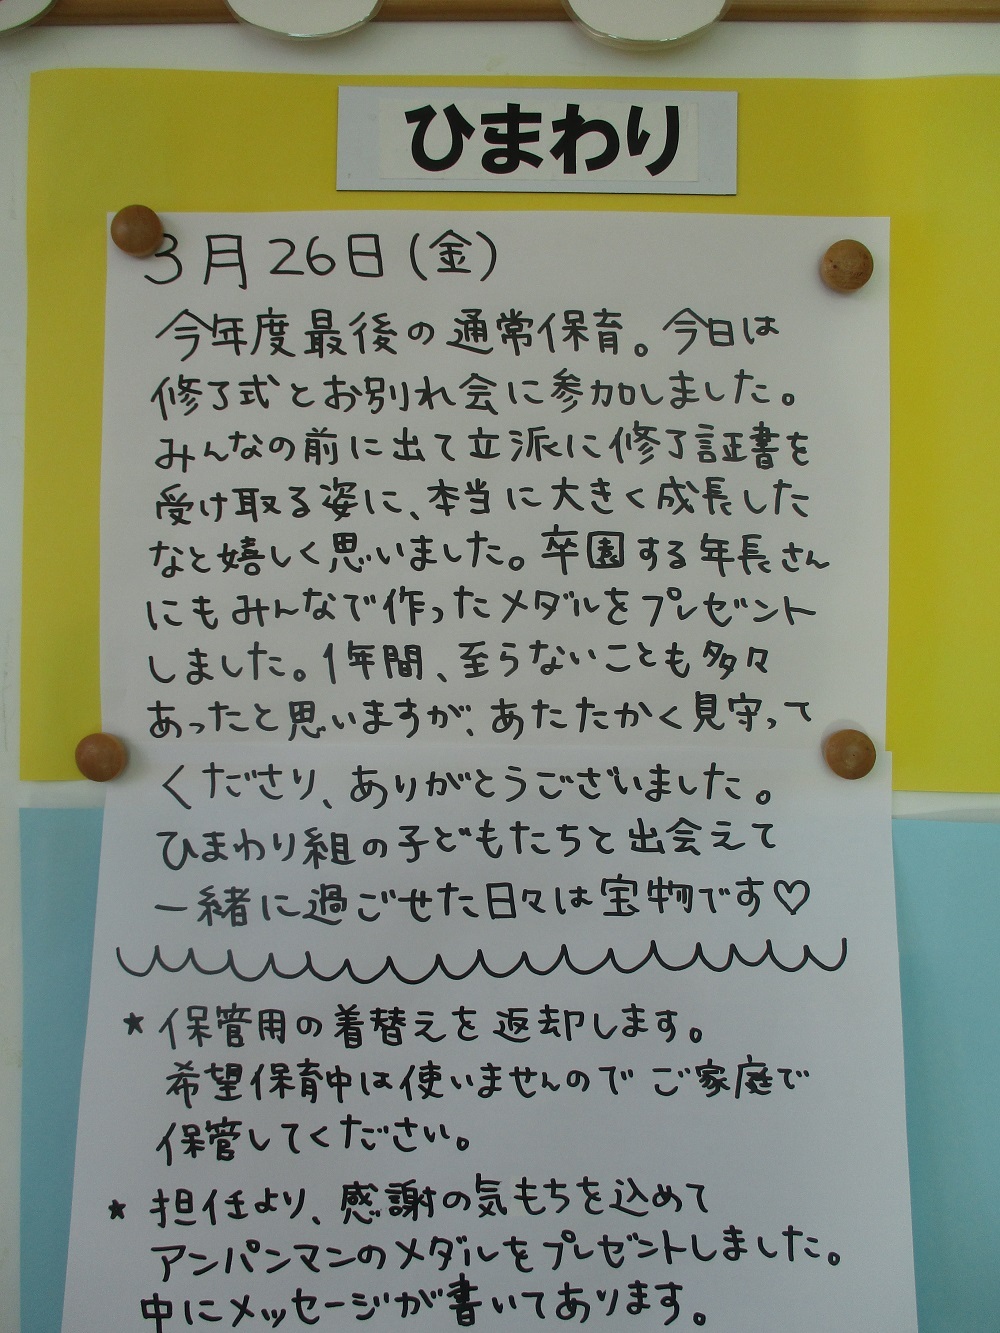 ひまわり
3月26日(金)
今年度最後の通常保育。今日は
修了式とお別れ会に参加しました。
みんなの前に出て立派に修了証書を
受け取る姿に、本当に大きく成長した
なと嬉しく思いました。卒園する年長さん
にもみんなで作ったメダルをプレゼント
しました。1年間、至らないことも多々
あったと思いますが、あたたかく見守って
くださり、ありがとうございました。
ひまわり組の子どもたちと出会えて
一緒に過ごせた日々は宝物です♡
★保管用の着替えを返却します。
希望保育中は使いませんのでご家庭で
保管してください。
★担任より、感謝の気もちを込めて
アンパンマンのメダルをプレゼントしました。
中にメッセージが書いてあります。